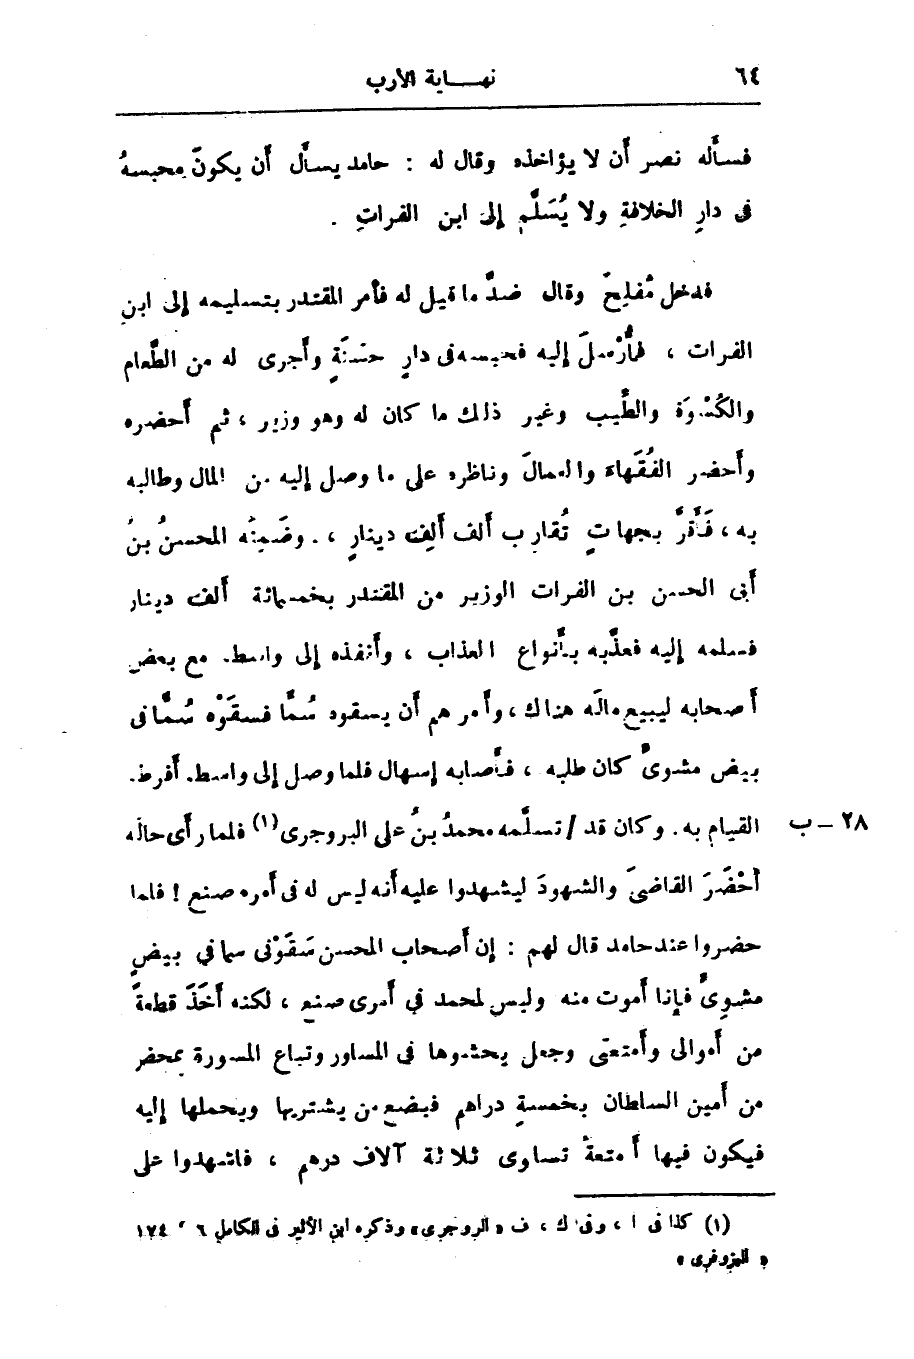 ٦٤
نهـــاية الأرب
فسأله نصر أن لا يؤاخذه وقال له : حامد يسأل أن يكونَ محبسهُ
فى دارِ الخلافةِ ولا يُسَلَّم إلى ابن الفراتِ .
فدخل مُفلِحَ وقال ضدَّ ما قيل له فأمر المقتدر بتسليمه إلى ابنِ
الفرات ، فأُرْسلَ إليه فحبسه فى دارٍ حسَنَةٍ وأجرى له من الطَّعام
والكُسْوَة والطِّيب وغير ذلك ما كان له وهو وزير ، ثم أحضره
وأحضر الفُقَهاءَ والعمالَ وناظره على ما وصل إليه من المال وطالبه
به ، فَأَقرَّ بجهاتٍ تُقارب ألف ألِف دينارٍ ، . وضَمِنَه المحسنُ بنُ
أبى الحسن بن الفرات الوزير من المقتدر بخمسمائة ألف دينار
فسلمه إليه فعذَّبه بأنواع العذاب ، وأنفذه إلى واسط. مع بعض
أصحابه ليبيع مالَه هناك ، وأمرهم أن يسقوه سُمًّا فسقَوْه سُمًّا فى
بيض مشوىٍّ كان طلبه ، فأصابه إسهال فلما وصل إلى واسط. أفرط.
القيام به . وكان قد / تسلَّمه محمدُ بنُ على البروجرى (١) فلما رأى حالَه
٢٨ – ب
أحْضَرَ القاضىَ والشهودَ ليشهدوا عليه أنه ليس له فى أمره صنع ! فلما
حضروا عند حامد قال لهم : إن أصحاب المحسن سَقَوْنى سما في بيضٍ
مشوِىٍّ فإنا أموت منه وليس لمحمد في أمرى صنع ، لكنه أخَذَ قطعةً
من أموالى وأمتعتى وجعل يحشوها فى المساور وتباع المسورة بمحضر
من أمين السلطان بخمسةِ دراهم فيضع من يشتريها ويحملها إليه
فيكون فيها أمتعةٌ تساوى ثلاثة آلاف درهم ، فاشهدوا على
(١) كذا فى ا ، وفى ك ، ف « الروجرى » وذكره ابن الأثير فى الكامل ٦ ، ١٧٤
« البزوفرى »